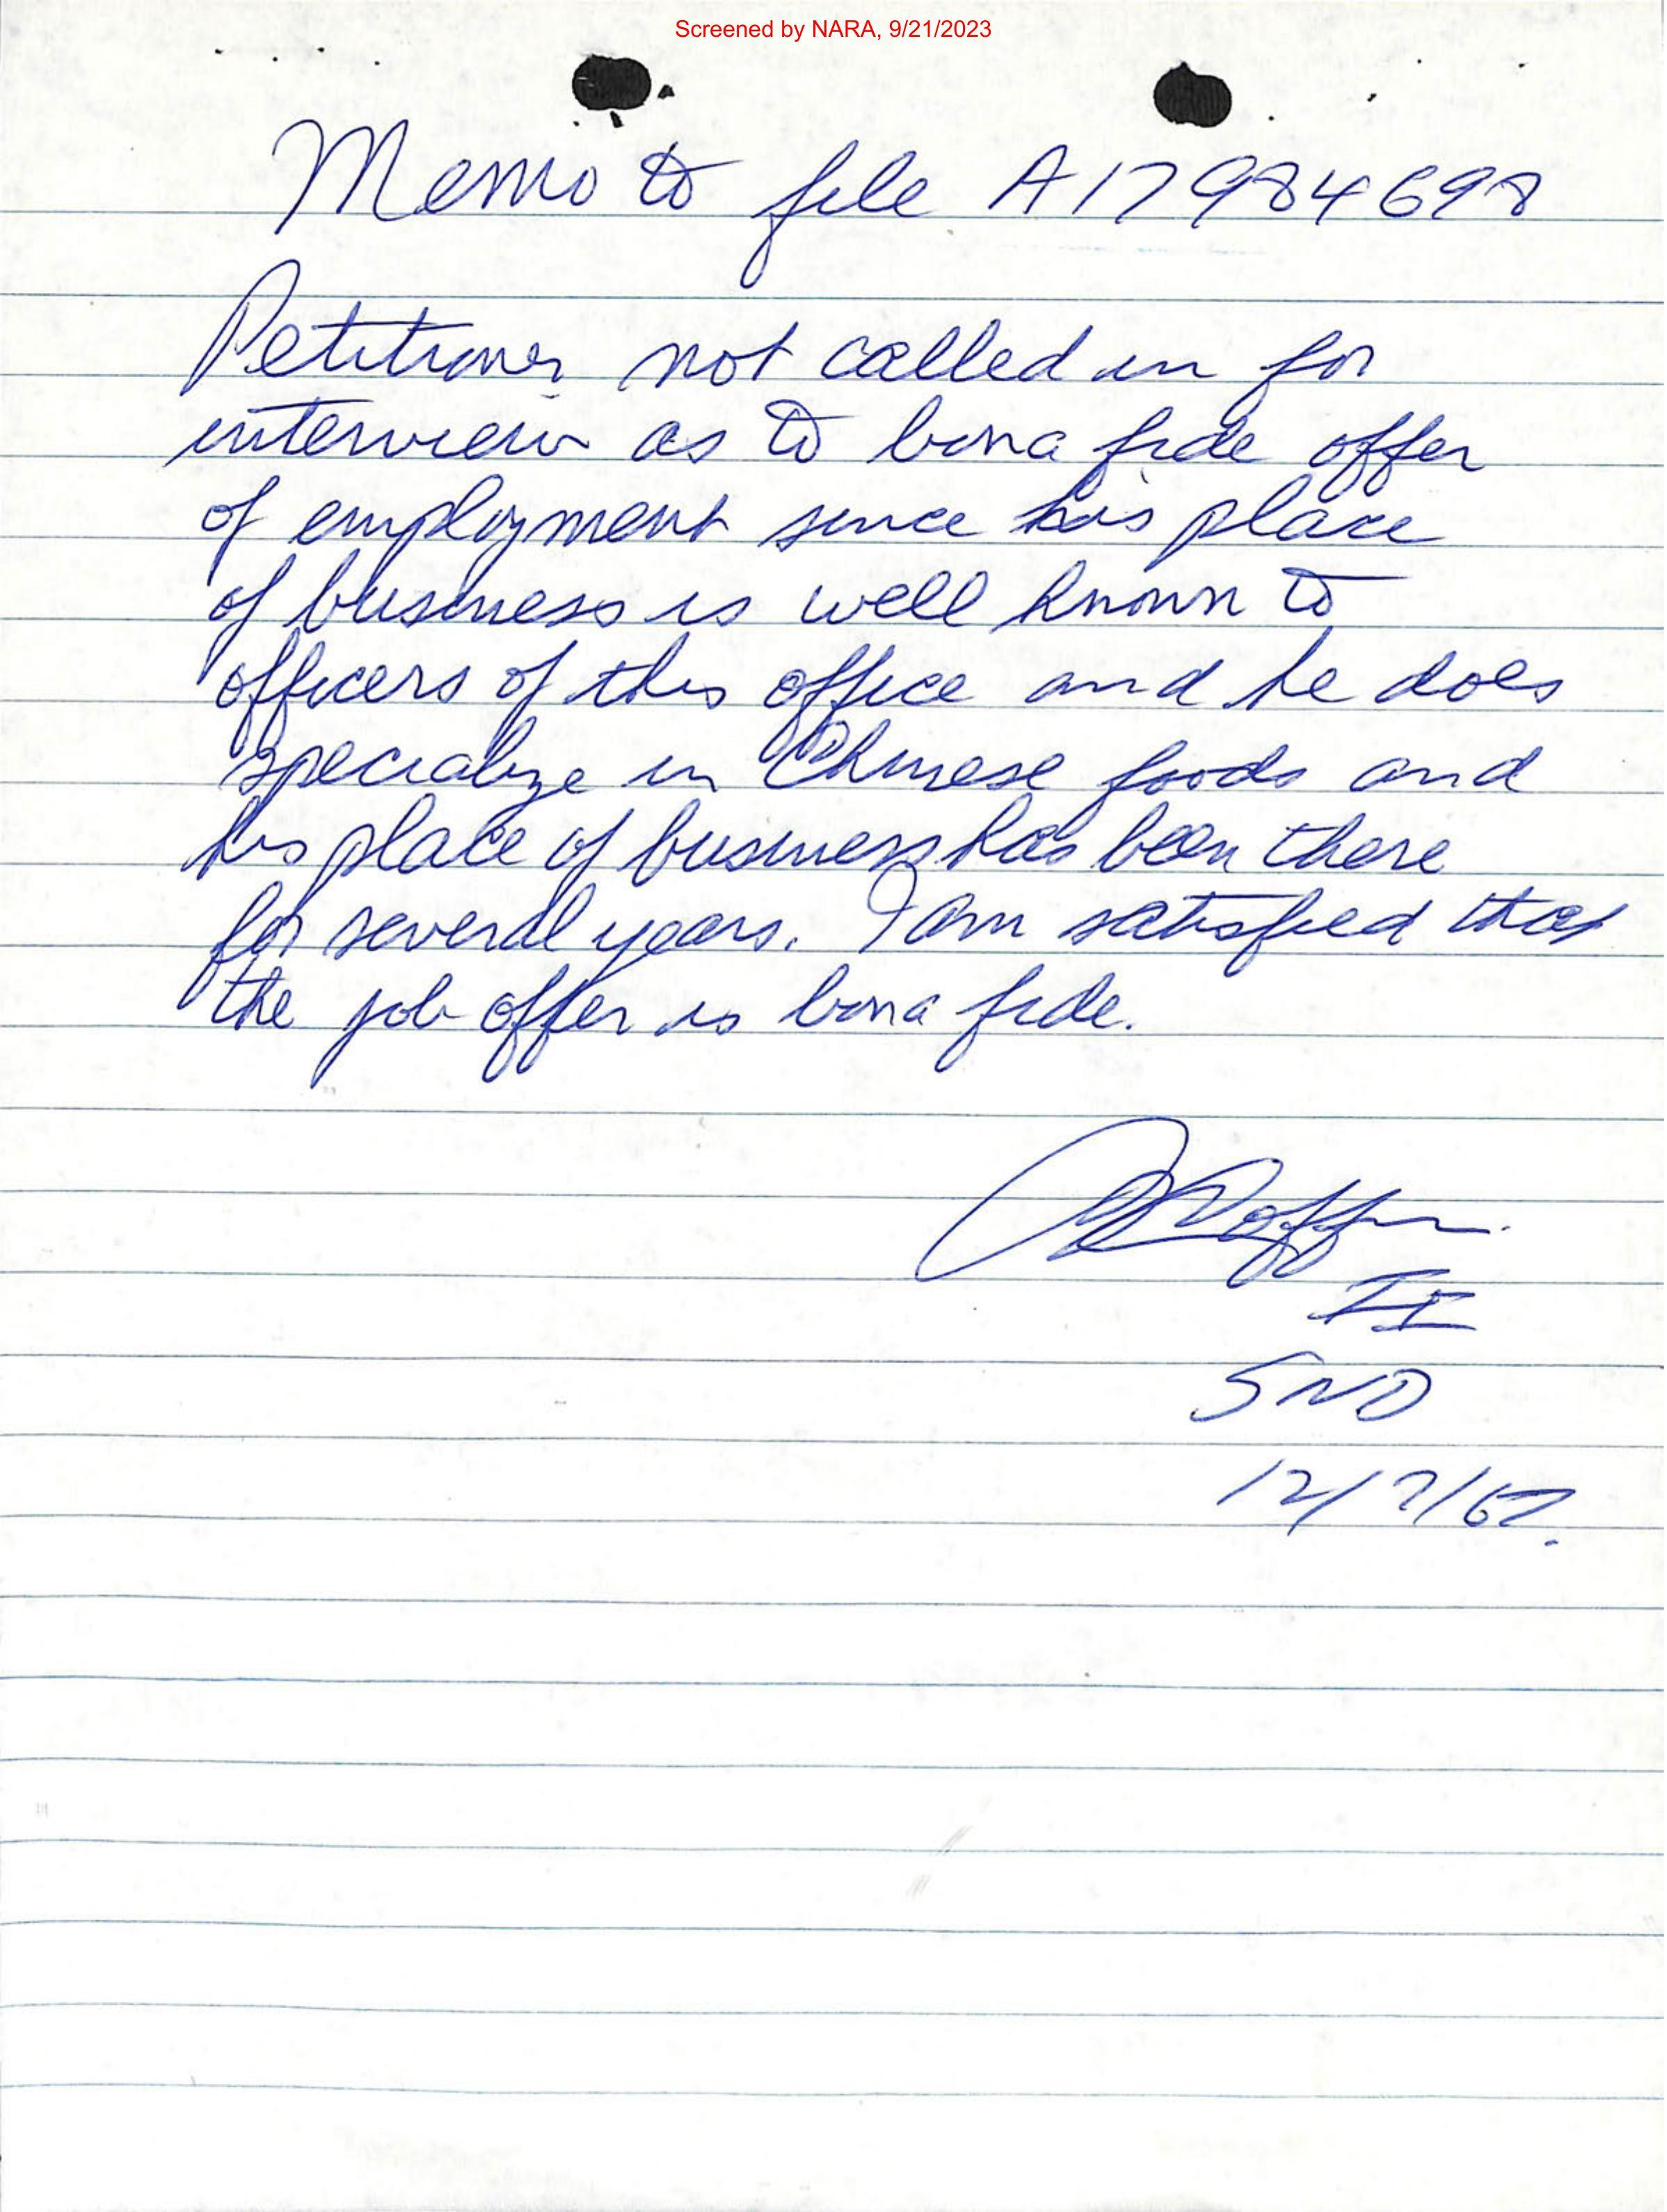 Screened by NARA, 9/21/2023
Memo to file A17984698
Petitioner not called in for
interview as to bona fide offer
of employment since his place
of business is well known to
officers of this office and he does
specialize in Chinese foods and
his place of business has been there
for several years. I am satisfied that
the job offer is bona fide.
II
SND
12/7/67.